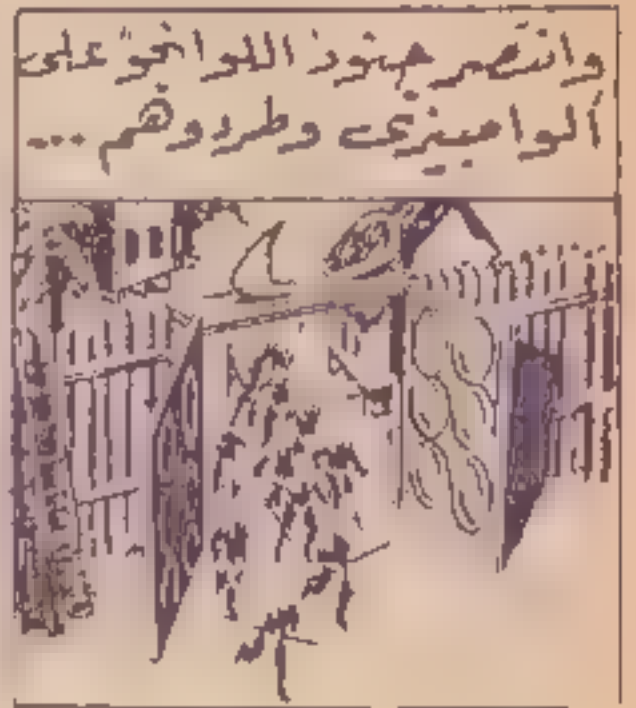 وانتصر جنود اللوانجو على
ألوامبيزى وطردوهم ...